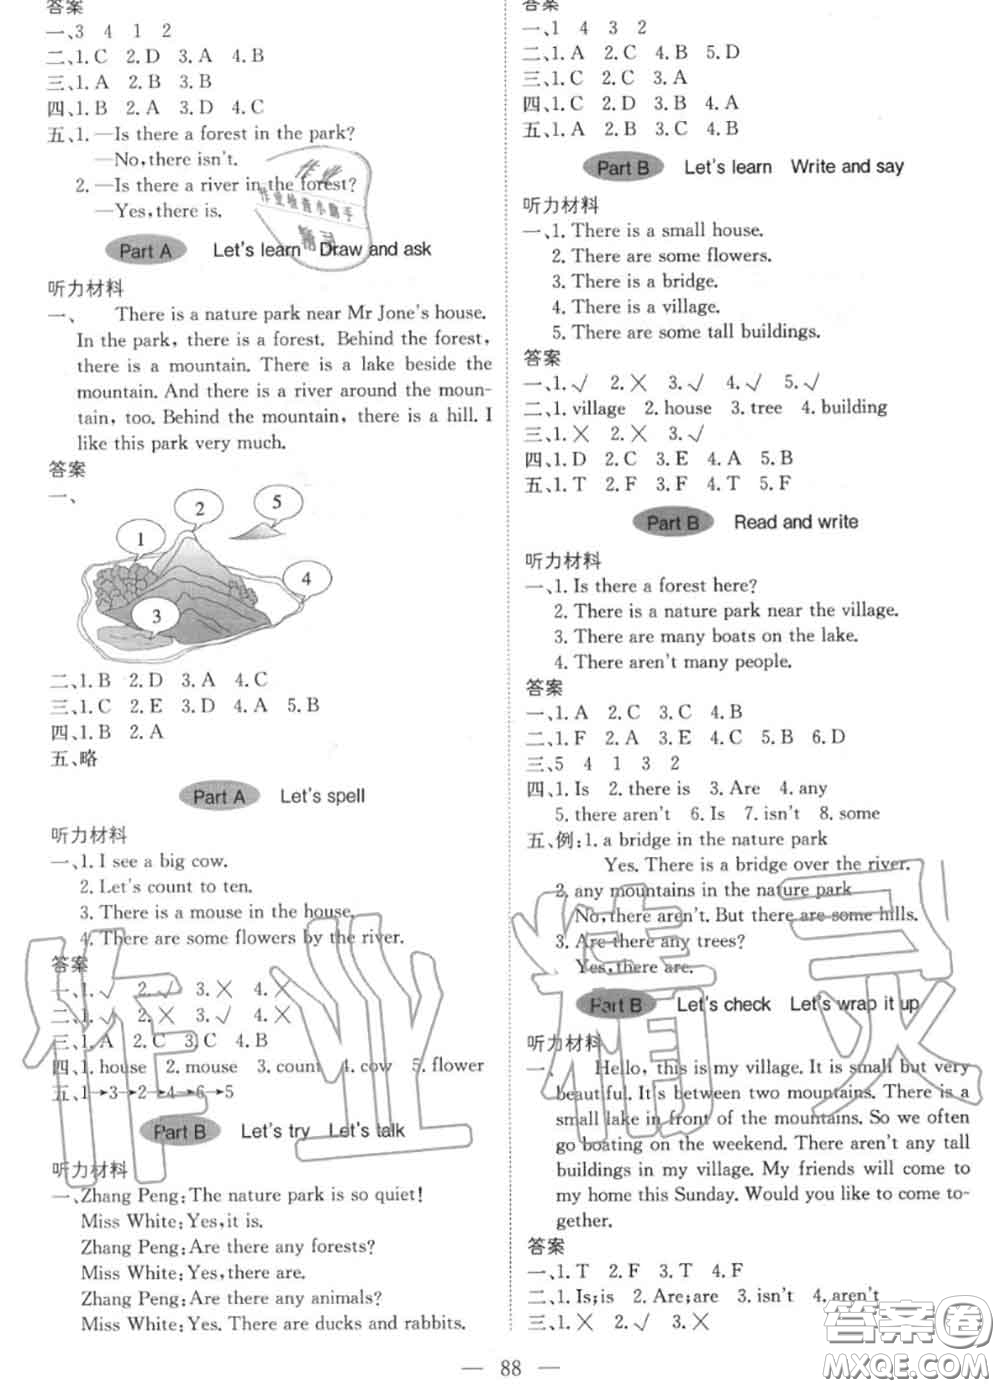 答案
一、3 4 1 2
二、1. C 2. D 3. A 4. B
三、1. A 2. B 3. B
四、1. B 2. A 3. D 4. C
五、1. —Is there a forest in the park?
—No, there isn't.
2. —Is there a river in the forest?
—Yes, there is.
Part A Let's learn Draw and ask
听力材料
一、 There is a nature park near Mr Jone's house.
In the park, there is a forest. Behind the forest,
there is a mountain. There is a lake beside the
mountain. And there is a river around the moun-
tain, too. Behind the mountain, there is a hill. I
like this park very much.
答案
一、
1
2
5
4
3
二、1. B 2. D 3. A 4. C
三、1. C 2. E 3. D 4. A 5. B
四、1. B 2. A
五、略
Part A Let's spell
听力材料
一、1. I see a big cow.
2. Let's count to ten.
3. There is a mouse in the house.
4. There are some flowers by the river.
答案
一、1. √ 2. √ 3. ✕ 4. ✕
二、1. √ 2. ✕ 3. √ 4. ✕
三、1. A 2. C 3. C 4. B
四、1. house 2. mouse 3. count 4. cow 5. flower
五、1→3→2→4→6→5
Part B Let's try Let's talk
听力材料
一、Zhang Peng: The nature park is so quiet!
Miss White: Yes, it is.
Zhang Peng: Are there any forests?
Miss White: Yes, there are.
Zhang Peng: Are there any animals?
Miss White: Yes. There are ducks and rabbits.
答案
一、1 4 3 2
二、1. A 2. C 4. B 5. D
三、1. C 2. C 3. A
四、1. C 2. D 3. B 4. A
五、1. A 2. B 3. C 4. B
Part B Let's learn Write and say
听力材料
一、1. There is a small house.
2. There are some flowers.
3. There is a bridge.
4. There is a village.
5. There are some tall buildings.
答案
一、1. √ 2. ✕ 3. √ 4. √ 5. √
二、1. village 2. house 3. tree 4. building
三、1. ✕ 2. ✕ 3. √
四、1. D 2. C 3. E 4. A 5. B
五、1. T 2. F 3. F 4. T 5. F
Part B Read and write
听力材料
一、1. Is there a forest here?
2. There is a nature park near the village.
3. There are many boats on the lake.
4. There aren't many people.
答案
一、1. A 2. C 3. C 4. B
二、1. F 2. A 3. E 4. C 5. B 6. D
三、5 4 1 3 2
四、1. Is 2. there is 3. Are 4. any
5. there aren't 6. Is 7. isn't 8. some
五、例: 1. a bridge in the nature park
Yes. There is a bridge over the river.
2. any mountains in the nature park
No, there aren't. But there are some hills.
3. Are there any trees?
Yes, there are.
Part B Let's check Let's wrap it up
听力材料
一、 Hello, this is my village. It is small but very
beautiful. It's between two mountains. There is a
small lake in front of the mountains. So we often
go boating on the weekend. There aren't any tall
buildings in my village. My friends will come to
my home this Sunday. Would you like to come to-
gether.
答案
一、1. T 2. F 3. T 4. F
二、1. Is; is 2. Are; are 3. isn't 4. aren't
三、1. ✕ 2. √ 3. ✕
— 88 —
作业精灵
答案圈
MXQE.COM